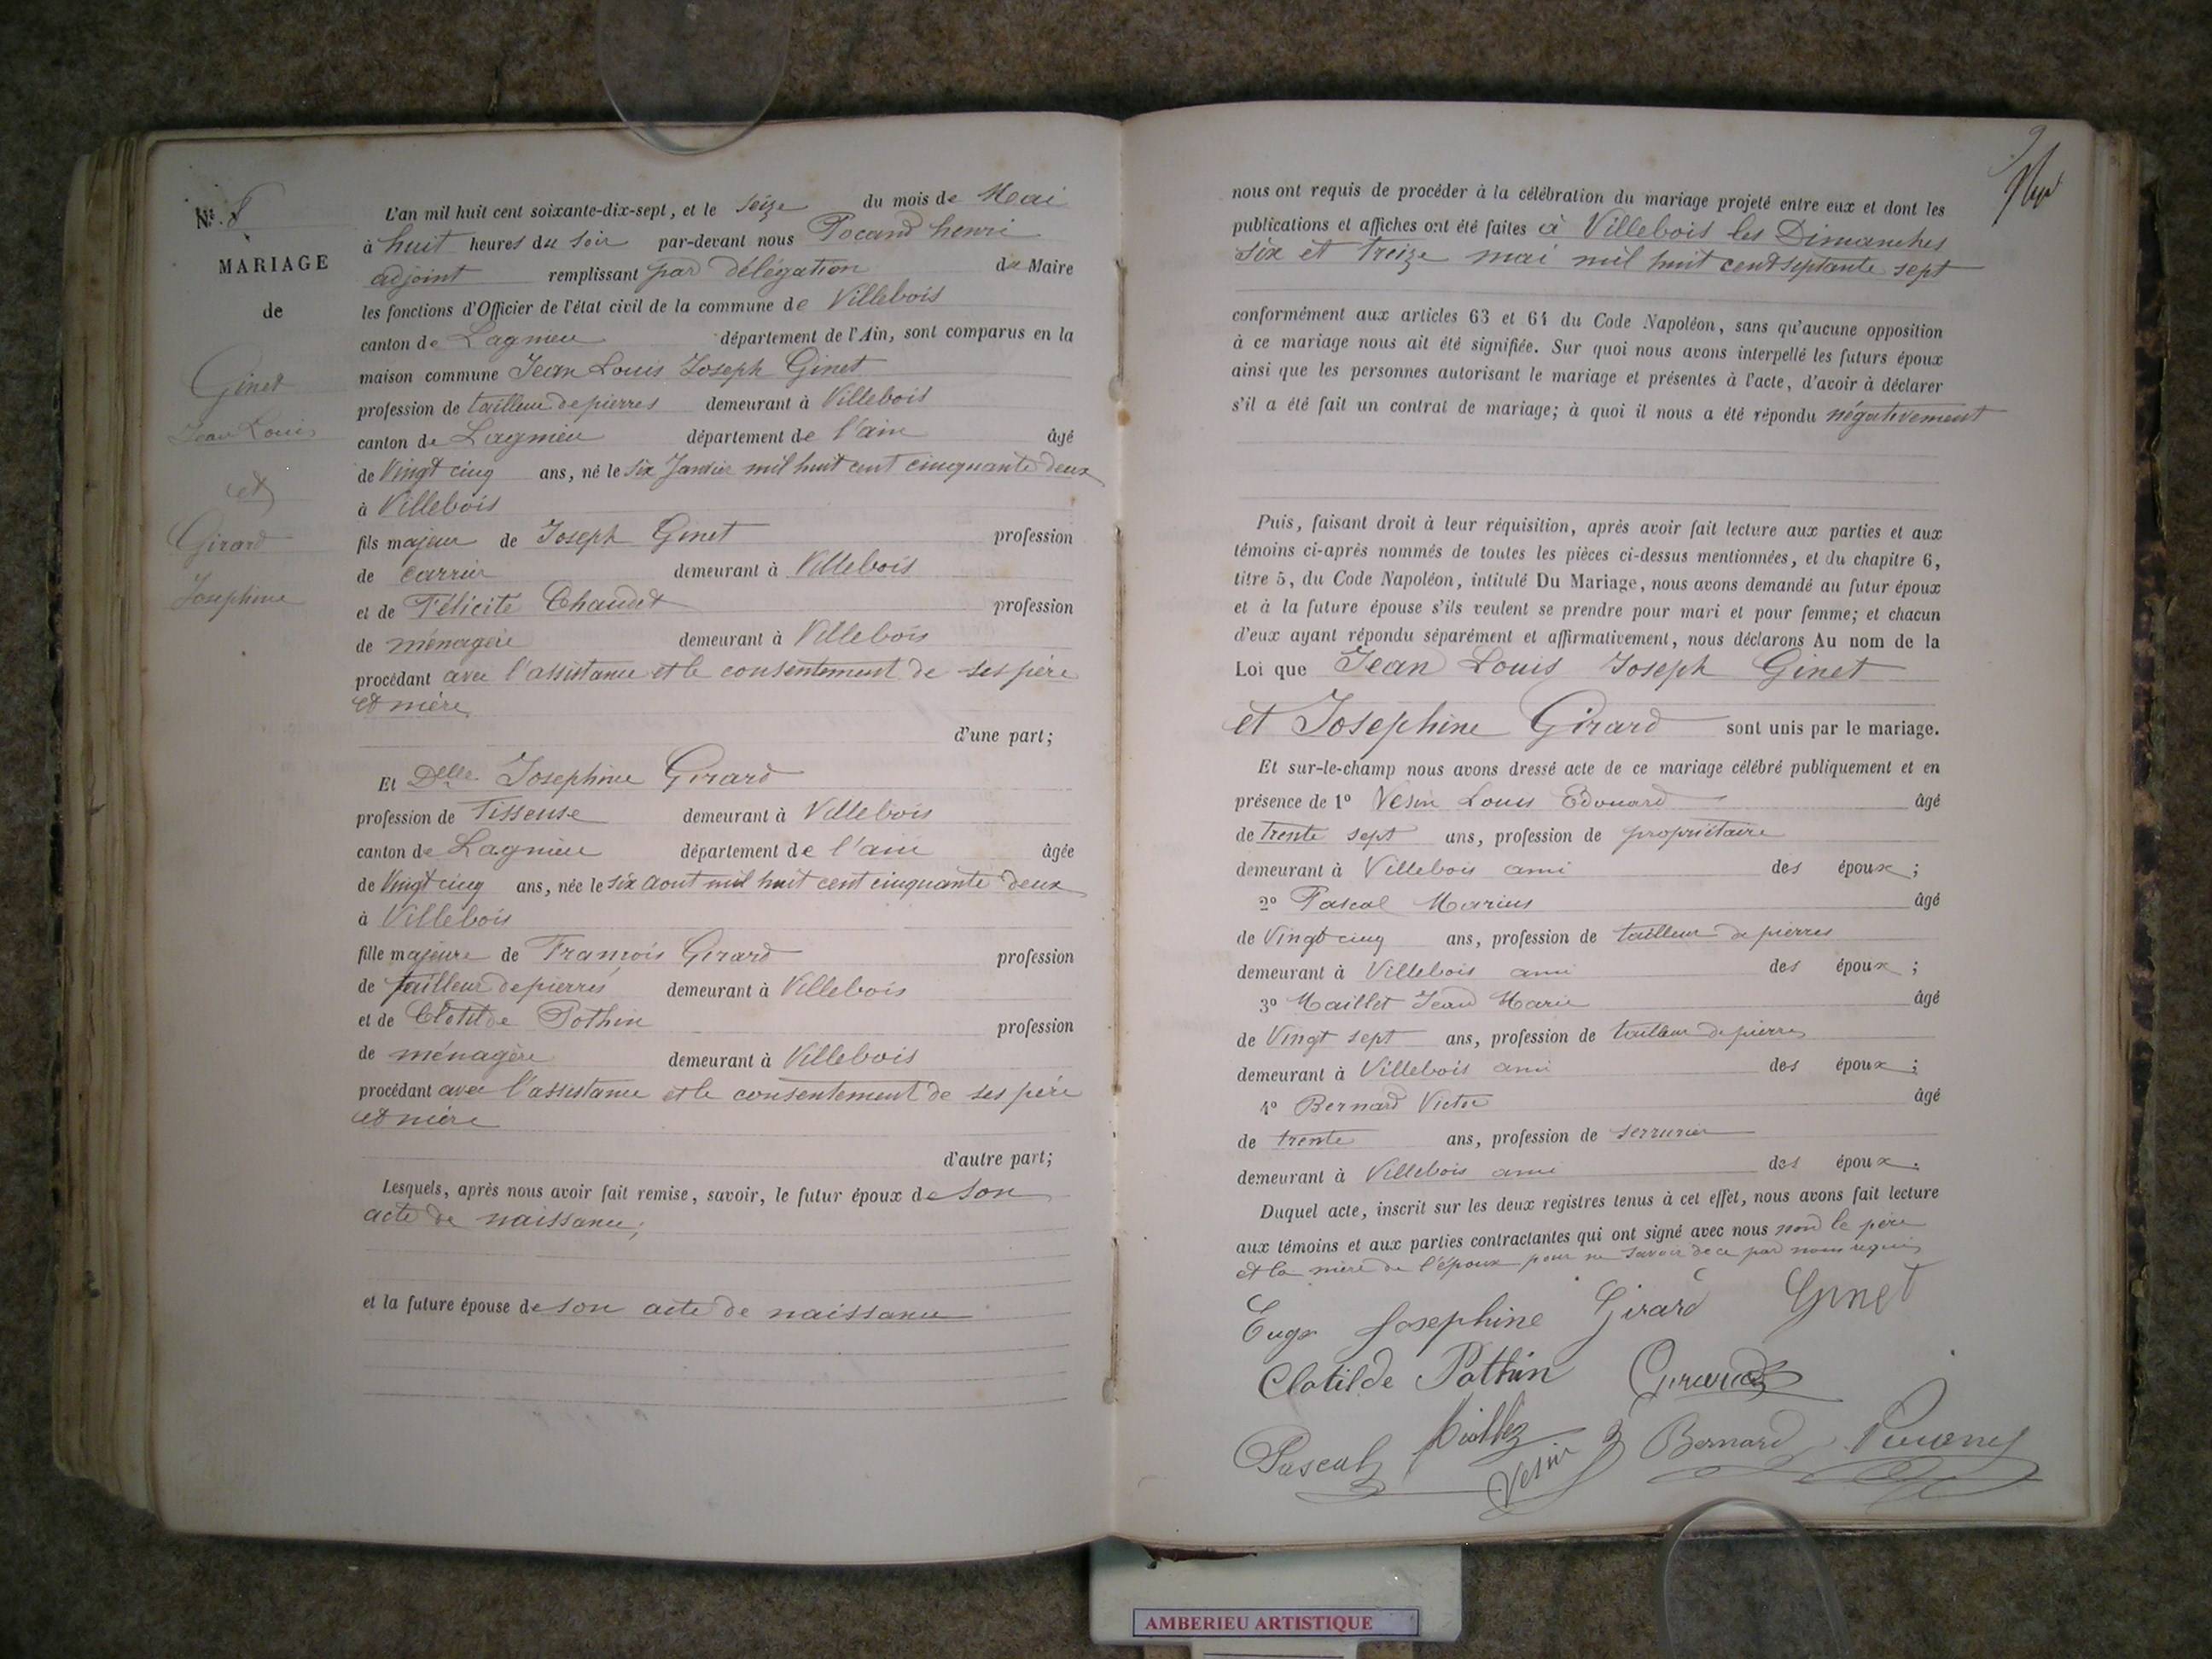 N° 8
MARIAGE
de
Ginet
Jean Louis
et
Girard
Josephine
L'an mil huit cent soixante-dix-sept, et le seize du mois de Mai
à huit heures du soir par-devant nous Pocand henri
adjoint remplissant par délégation du Maire
les fonctions d'Officier de l'état civil de la commune de Villebois
canton de Lagnieu département de l'Ain, sont comparus en la
maison commune Jean Louis Joseph Ginet
profession de tailleur de pierres demeurant à Villebois
canton de Lagnieu département de l'ain âgé
de Vingt cinq ans, né le six Janvier mil huit cent cinquante deux
à Villebois
fils majeur de Joseph Ginet profession
de carrier demeurant à Villebois
et de Félicité Chaudet profession
de ménagère demeurant à Villebois
procédant avec l'assistance et le consentement de ses père
et mère
d'une part;
Et Delle Josephine Girard
profession de Tisseuse demeurant à Villebois
canton de Lagnieu département de l'ain âgée
de Vingt cinq ans, née le six Aout mil huit cent cinquante deux
à Villebois
fille majeure de François Girard profession
de tailleur de pierres demeurant à Villebois
et de Clotilde Pothin profession
de ménagère demeurant à Villebois
procédant avec l'assistance et le consentement de ses père
et mère
d'autre part;
Lesquels, après nous avoir fait remise, savoir, le futur époux de son
acte de naissance;
et la future épouse de son acte de naissance
9
nous ont requis de procéder à la célébration du mariage projeté entre eux et dont les
publications et affiches ont été faites à Villebois les Dimanches
six et treize mai mil huit cent septante sept
conformément aux articles 63 et 64 du Code Napoléon, sans qu'aucune opposition
à ce mariage nous ait été signifiée. Sur quoi nous avons interpellé les futurs époux
ainsi que les personnes autorisant le mariage et présentes à l'acte, d'avoir à déclarer
s'il a été fait un contrat de mariage; à quoi il nous a été répondu négativement
Puis, faisant droit à leur réquisition, après avoir fait lecture aux parties et aux
témoins ci-après nommés de toutes les pièces ci-dessus mentionnées, et du chapitre 6,
titre 5, du Code Napoléon, intitulé Du Mariage, nous avons demandé au futur époux
et à la future épouse s'ils veulent se prendre pour mari et pour femme; et chacun
d'eux ayant répondu séparément et affirmativement, nous déclarons Au nom de la
Loi que Jean Louis Joseph Ginet
et Josephine Girard sont unis par le mariage.
Et sur-le-champ nous avons dressé acte de ce mariage célébré publiquement et en
présence de 1° Vesin Louis Edouard âgé
de trente sept ans, profession de propriétaire
demeurant à Villebois ami des époux;
2° Pascal Marius âgé
de Vingt cinq ans, profession de tailleur de pierres
demeurant à Villebois ami des époux;
3° Maillet Jean Marie âgé
de Vingt sept ans, profession de tailleur de pierres
demeurant à Villebois ami des époux;
4° Bernard Victor âgé
de trente ans, profession de serrurier
demeurant à Villebois ami des époux.
Duquel acte, inscrit sur les deux registres tenus à cet effet, nous avons fait lecture
aux témoins et aux parties contractantes qui ont signé avec nous non le père
et la mère de l'époux pour ne savoir de ce par nous requis
Josephine Girard Ginet
Clotilde Pothin Girard
Pascal Vesin Bernard
AMBERIEU ARTISTIQUE